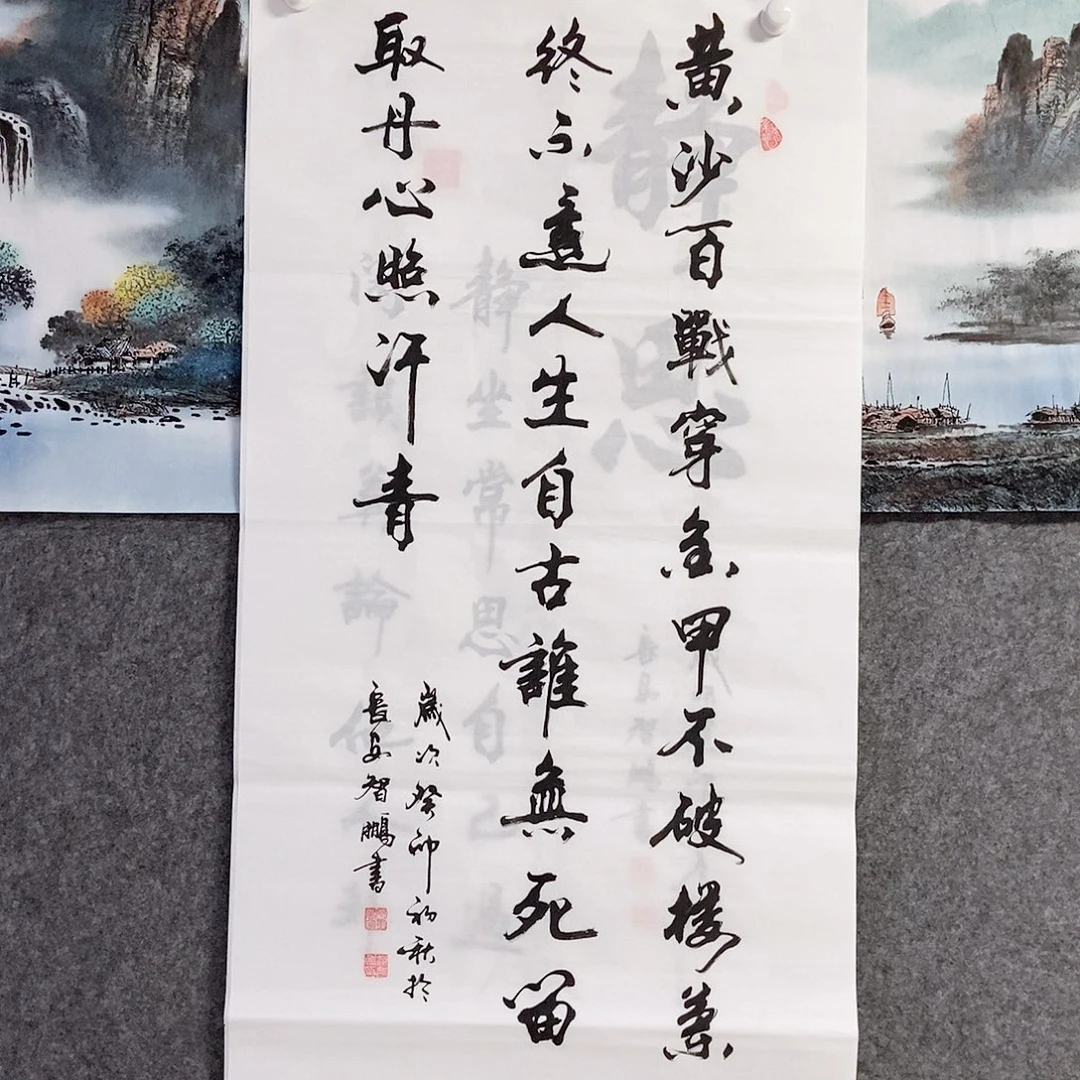 黄沙百戰穿金甲不破樓蘭
終不還人生自古誰無死留
取丹心照汗青
歲次癸卯初秋於
長安智鵬書